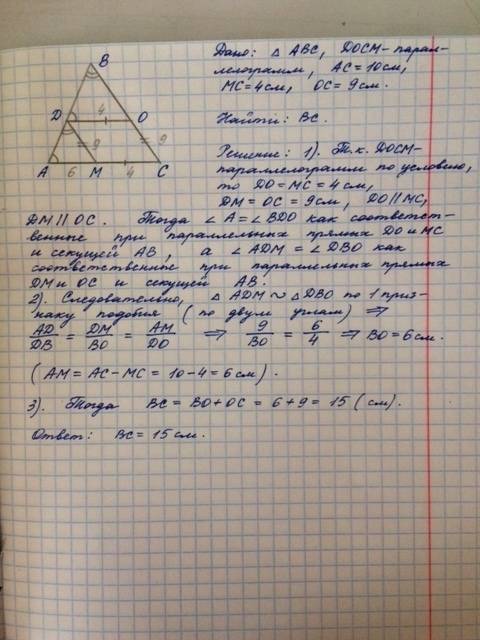 B
D
4
O
9
9
A
6
M
4
C
Дано: △ ABC, DOCM - парал-
лелограмм, AC = 10см,
MC = 4см, OC = 9см.
Найти: BC.
Решение: 1). Т.к. DOCM-
параллелограмм по условию,
то DO = MC = 4см,
DM = OC = 9см, DO || MC,
DM || OC. Тогда ∠A = ∠BDO как соответст-
венные при параллельных прямых DO и MC
и секущей AB, а ∠ADM = ∠DBO как
соответственные при параллельных прямых
DM и OC и секущей AB.
2). Следовательно, △ ADM ~ △ DBO по 1 приз-
наку подобия (по двум углам) ⇒
AD/DB = DM/BO = AM/DO ⇒ 9/BO = 6/4 ⇒ BO = 6см.
(AM = AC - MC = 10 - 4 = 6см).
3). Тогда BC = BO + OC = 6 + 9 = 15 (см).
Ответ: BC = 15см.